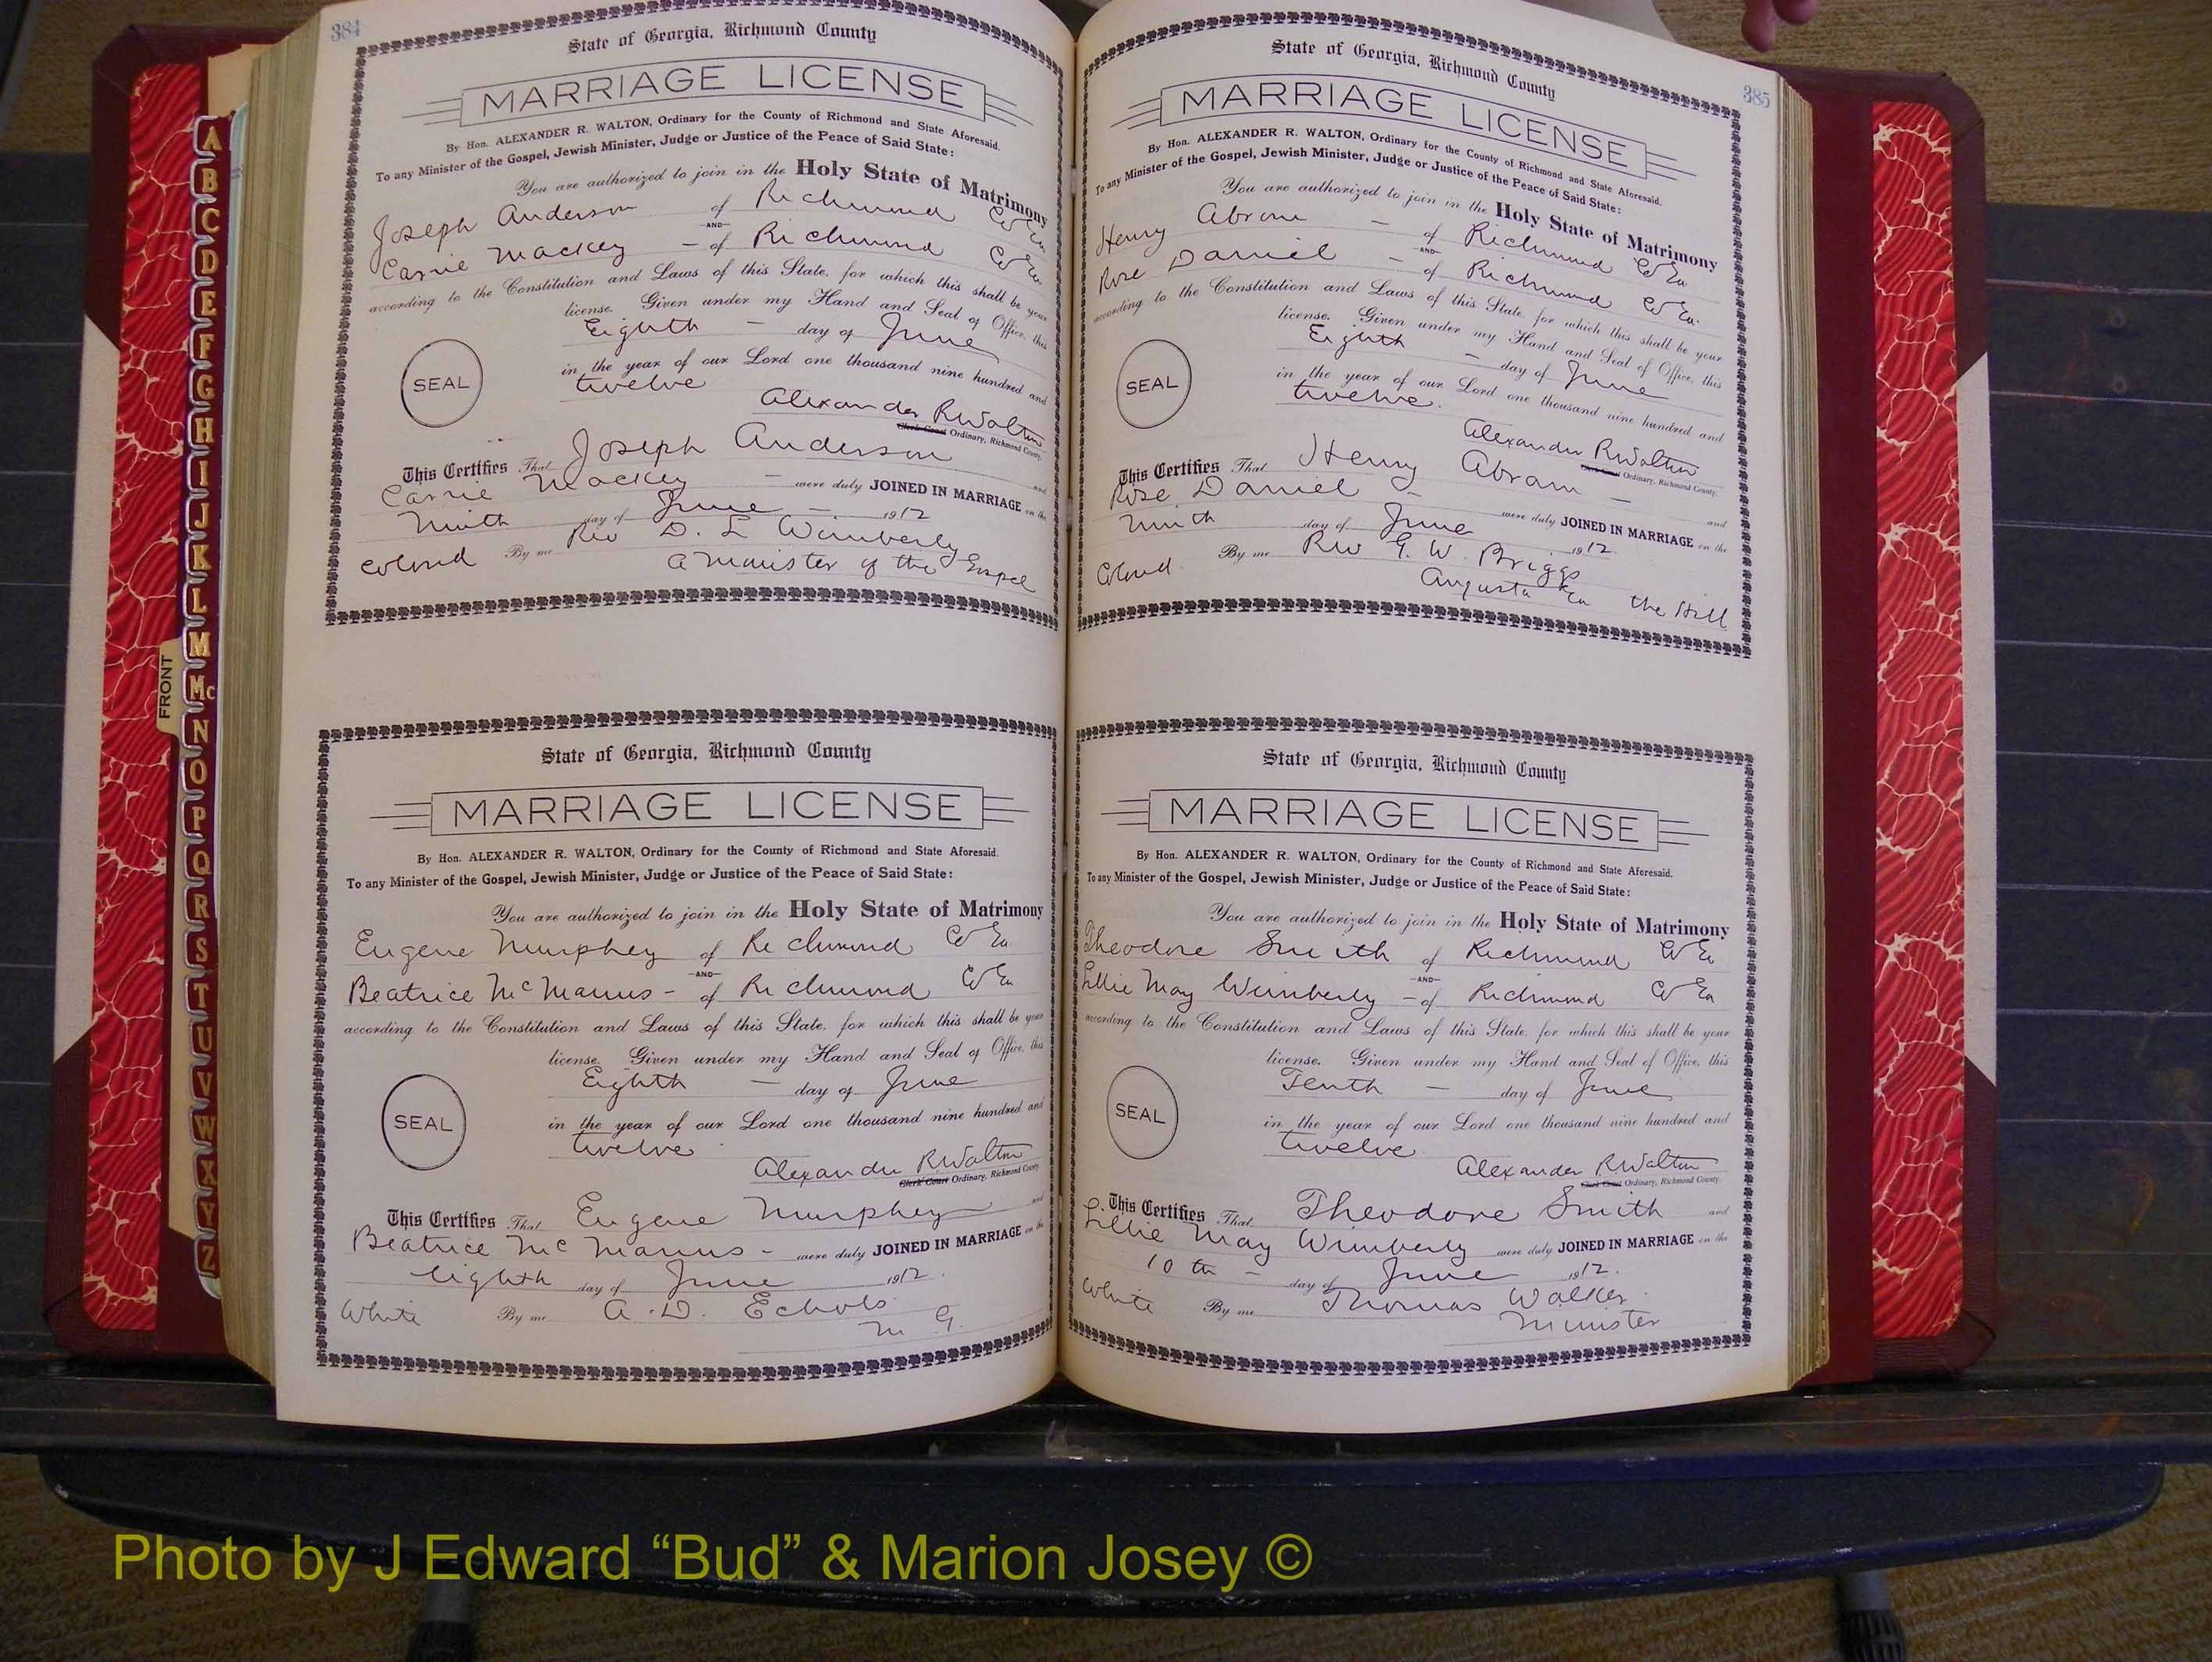 384
State of Georgia, Richmond County
MARRIAGE LICENSE
By Hon. ALEXANDER R. WALTON, Ordinary for the County of Richmond and State Aforesaid.
To any Minister of the Gospel, Jewish Minister, Judge or Justice of the Peace of Said State:
You are authorized to join in the Holy State of Matrimony
Joseph Anderson of Richmond Co Ga
AND
Carrie Mackey - of Richmond Co Ga
according to the Constitution and Laws of this State, for which this shall be your
license. Given under my Hand and Seal of Office, this
Eighth - day of June
in the year of our Lord one thousand nine hundred and
twelve
SEAL
Alexander R Walton
Clerk Court Ordinary, Richmond County.
This Certifies That Joseph Anderson and
Carrie Mackey - were duly JOINED IN MARRIAGE on the
Ninth day of June - 1912
Colored By me Rev D. L Wimberly
a Minister of the Gospel
State of Georgia, Richmond County
MARRIAGE LICENSE
By Hon. ALEXANDER R. WALTON, Ordinary for the County of Richmond and State Aforesaid.
To any Minister of the Gospel, Jewish Minister, Judge or Justice of the Peace of Said State:
You are authorized to join in the Holy State of Matrimony
Eugene Murphey of Richmond Co Ga
AND
Beatrice McManus - of Richmond Co Ga
according to the Constitution and Laws of this State, for which this shall be your
license. Given under my Hand and Seal of Office, this
Eighth - day of June
in the year of our Lord one thousand nine hundred and
twelve
SEAL
Alexander R Walton
Clerk Court Ordinary, Richmond County
This Certifies That Eugene Murphey and
Beatrice McManus - were duly JOINED IN MARRIAGE on the
eighth day of June 1912.
White By me A. D. Echols
M G.
385
State of Georgia, Richmond County
MARRIAGE LICENSE
By Hon. ALEXANDER R. WALTON, Ordinary for the County of Richmond and State Aforesaid.
To any Minister of the Gospel, Jewish Minister, Judge or Justice of the Peace of Said State:
You are authorized to join in the Holy State of Matrimony
Henry Abrom - of Richmond Co Ga
AND
Rose Daniel - of Richmond Co Ga.
according to the Constitution and Laws of this State, for which this shall be your
license. Given under my Hand and Seal of Office, this
Eighth - day of June
in the year of our Lord one thousand nine hundred and
twelve.
SEAL
Alexander R Walton
Clerk Court Ordinary, Richmond County.
This Certifies That Henry Abram - and
Rose Daniel - were duly JOINED IN MARRIAGE on the
Ninth day of June 1912.
Colored By me Rev G. W. Briggs
Augusta Ga the Hill
State of Georgia, Richmond County
MARRIAGE LICENSE
By Hon. ALEXANDER R. WALTON, Ordinary for the County of Richmond and State Aforesaid.
To any Minister of the Gospel, Jewish Minister, Judge or Justice of the Peace of Said State:
You are authorized to join in the Holy State of Matrimony
Theodore Smith of Richmond Co Ga
AND
Lillie May Wimberly - of Richmond Co Ga
according to the Constitution and Laws of this State, for which this shall be your
license. Given under my Hand and Seal of Office, this
Tenth - day of June
in the year of our Lord one thousand nine hundred and
twelve
SEAL
Alexander R Walton
Clerk Court Ordinary, Richmond County.
This Certifies That Theodore Smith and
Lillie May Wimberly were duly JOINED IN MARRIAGE on the
10 th - day of June 1912.
White By me Thomas Walker
Minister
FRONT
A
B
C
D
E
F
G
H
I
J
K
L
M
Mc
N
O
P
Q
R
S
T
U
V
W
X
Y
Z
Photo by J Edward “Bud” & Marion Josey ©